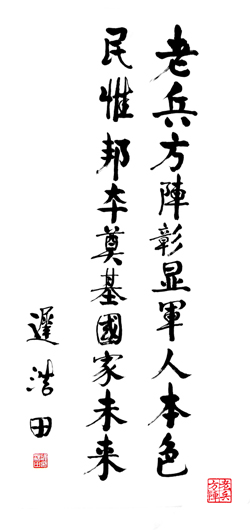 老兵方陣彰显軍人本色
民惟邦本奠基國家未来
遲浩田